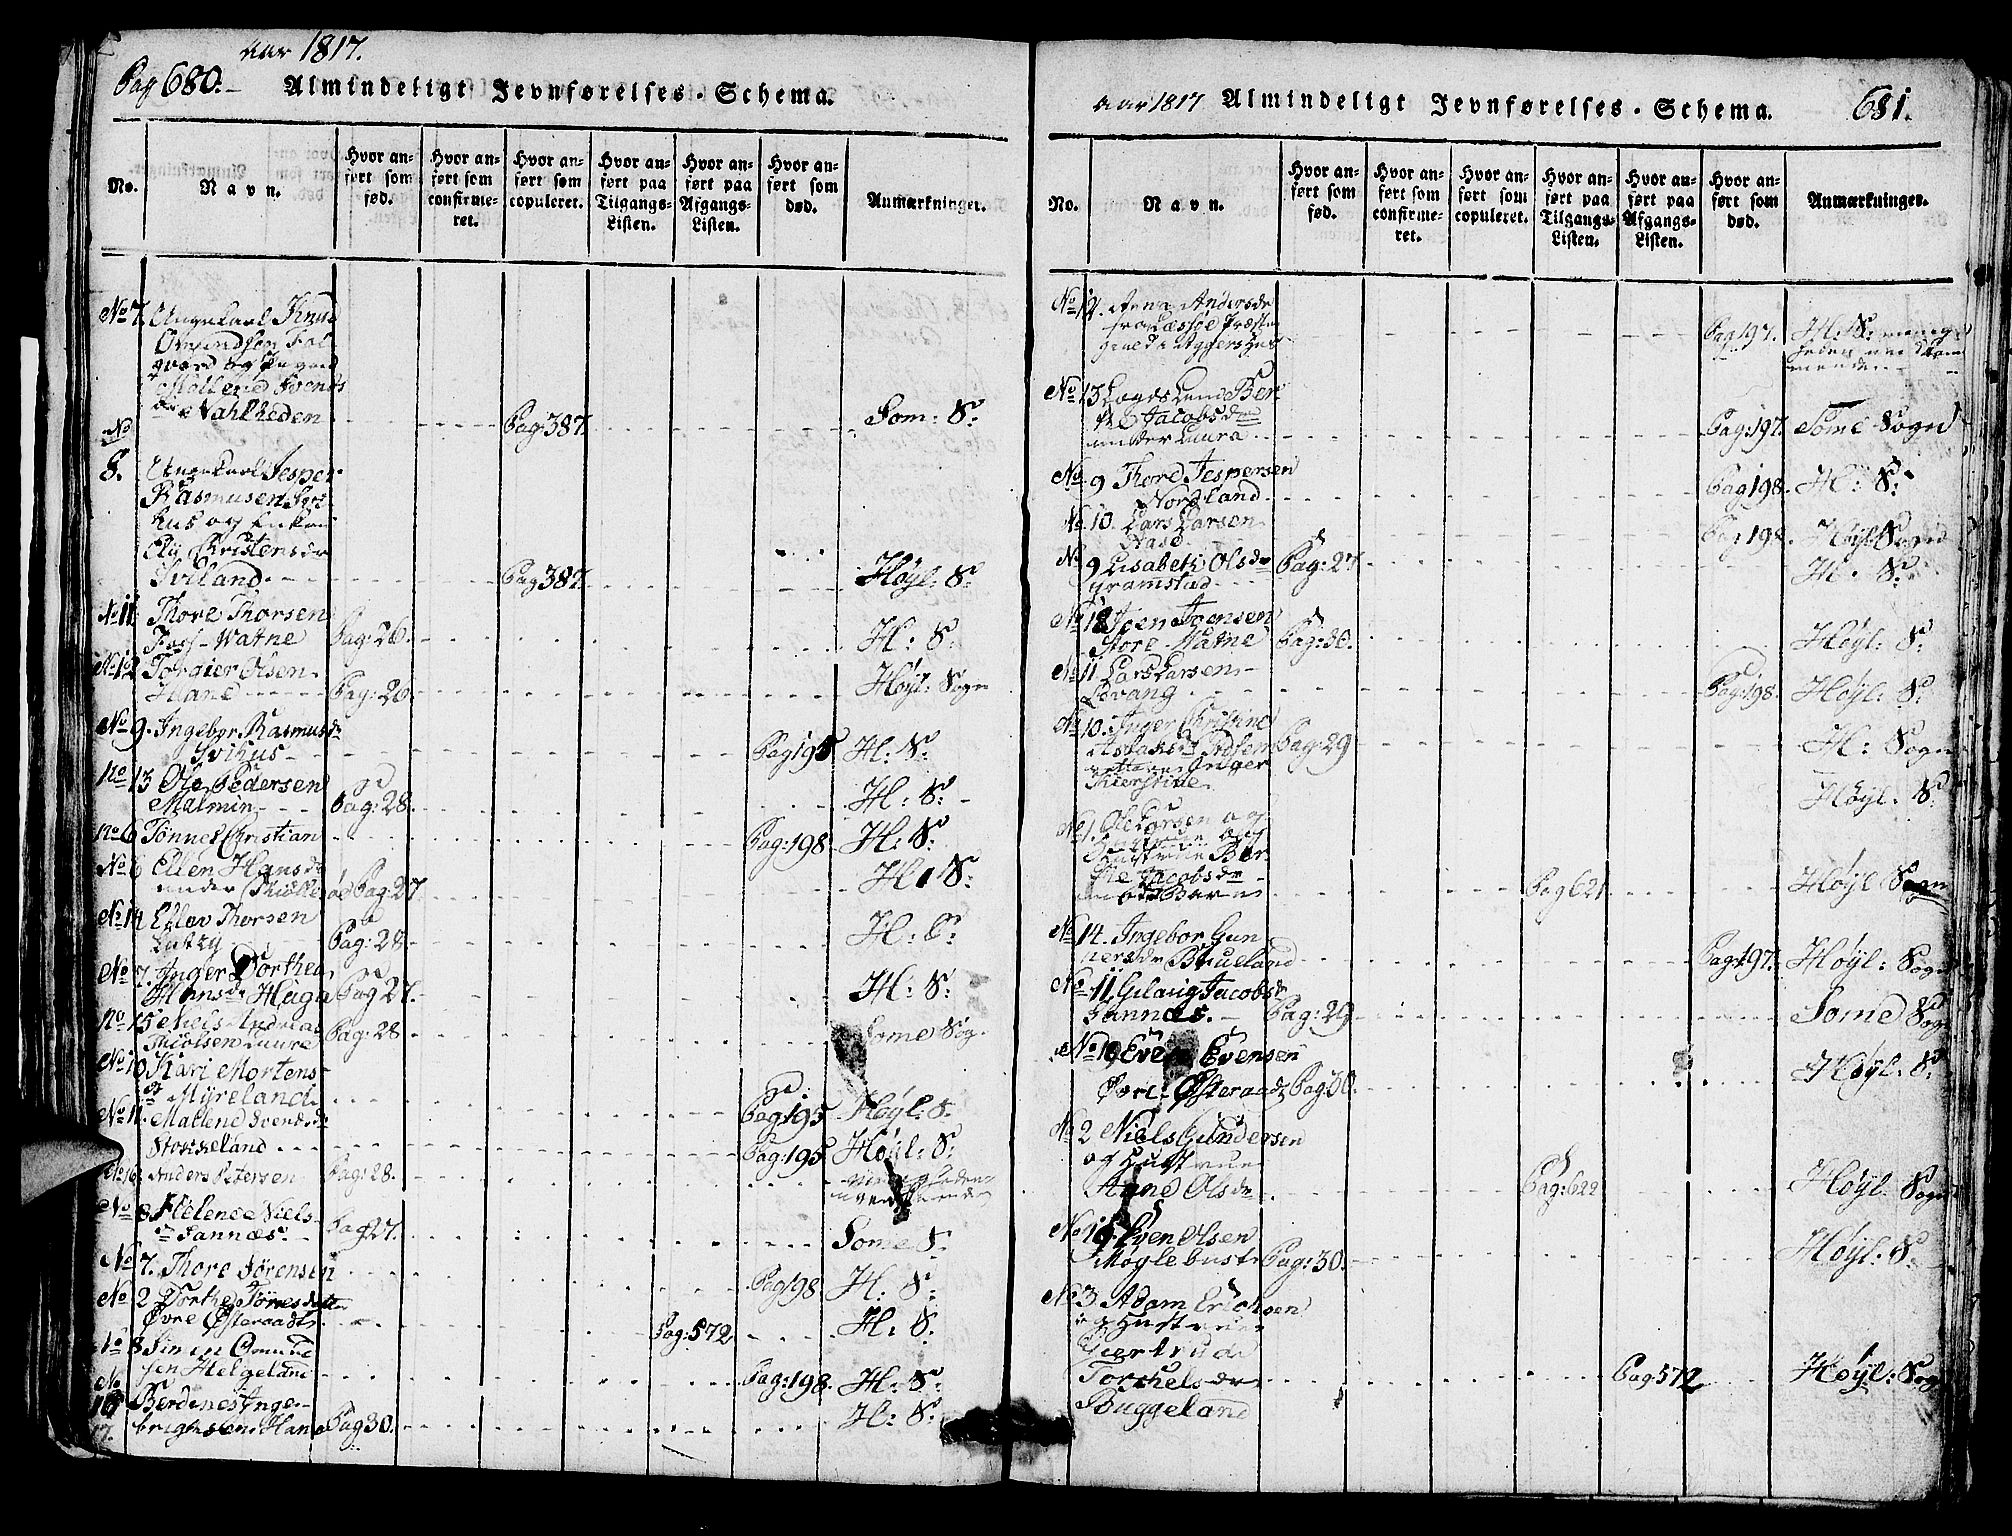 Aar 1817.
Pag 680.
Almindeligt Jevnførelses-Schema.
No.
Navn.
Hvor anført som fød.
Hvor anført som confirmeret.
Hvor anført som copuleret.
Hvor anført paa Tilgangs-Listen.
Hvor anført paa Afgangs-Listen.
Hvor anført som død.
Anmærkninger.
No 7. Ungekarl Knud
Omundsen
og Pigen
Mallene Svends
dr Vahlheden Pag 387. Som: S:
No
8. Ungekarl Jesper
Rasmusen
hus og Enken
Elij Christensdr
Sviland. Pag 387. Høyl: S:
No 11 Thore Thorsen
Foss-Vatne Pag: 26. H: S:
No 12 Torgier Olsen
Hane Pag: 26. Høyl: Sogn
No 9. Ingebor Rasmusdr
Svihus Pag 195 H: S:
No 13 Ole Pedersen
Malmin Pag: 28. H: S:
No 6 Tønnes Christian Pag: 198 H: S:
No 6 Ellen Hansdr
under Pag: 27 H: S:
No 14 Ellev Thorsen
Lutzy Pag: 28 H: S:
No 7. Inger Dorthea
Hansdr Hauga Pag 27. H: S:
No 15 Neis Andreas
Thiolsen Luura Pag: 28 Some Sog.
No 10 Kari Mortens
dr Myreland Pag: 195 Høyl: S.
No 11. Mallene Svendsdr
Stokkeland Pag: 195 Høyl: S:
No 16 Anders Petersen Pag: 28.
No 8 Helene Niels
dr Sannæs Pag 27. Some S.
No 7. Thore Jørensen Pag 198 H: S:
No 2 Dorthe Tønesdatter
Øvre Østeraadt Pag: 572. H: S:
No 8 Simen Omund
sen Helgeland Pag: 198. H: S:
No
17. Berdines Inge-
brigtsen Hana Pag 30. H: S:
Aar 1817 Almindeligt Jevnførelses-Schema. 681.
No.
Navn.
Hvor anført som fød.
Hvor anført som confirmeret.
Hvor anført som copuleret.
Hvor anført paa Tilgangs-Listen.
Hvor anført paa Afgangs-Listen.
Hvor anført som død.
Anmærkninger.
No 12. Anna Andersdr
fra Præste
gield i Aggershus Pag 197. H: S: menig
heden
No 13 Lægds Lem Ber
the Jacobsdr
under Luura Pag: 197. Some Sogn
No 9 Thore Jespersen
Nordland Pag 198. H: S:
No 10. Lars Larsen
Aase Pag 198. Høyl Sogn
No 9 Lisabeth Olsdr
gramstad Pag: 27 H: S:
No 18 Joen Joensen
Store Vatne Pag: 30. Høyl: S:
No 11 Lars Larsen
Lovang Pag: 198. Høyl: S:
No 10. Inger Christine
Pag: 29 H: Sogn
Inger
Kierstine Høyl. S:
No 1. Ole Larsen og
Hustrue Ber
the Jacobsdr
Pag 621 Høyl Sogn
No 14. Ingebor Gun
nersdr Brueland Pag: 197. Høyl: Sogn
No 11. Gilarig Jacobsdr
Sannæs. Pag: 29 Some Sogn
No 19 Even Evensen
Øvre Østeraadt Pag: 30. Høyl: S:
No 2 Niels Gundersen
og Hustrue
Anne Olsdr Pag: 622 Høyl. Sogn
No 18. Even Olsen
Møglebust Pag: 30. Høyl: S:
No 3 Adam Erichsen
og Hustrue
Giertrude
Torchelsdr Pag 572 Høyl: Sogn
Buggeland